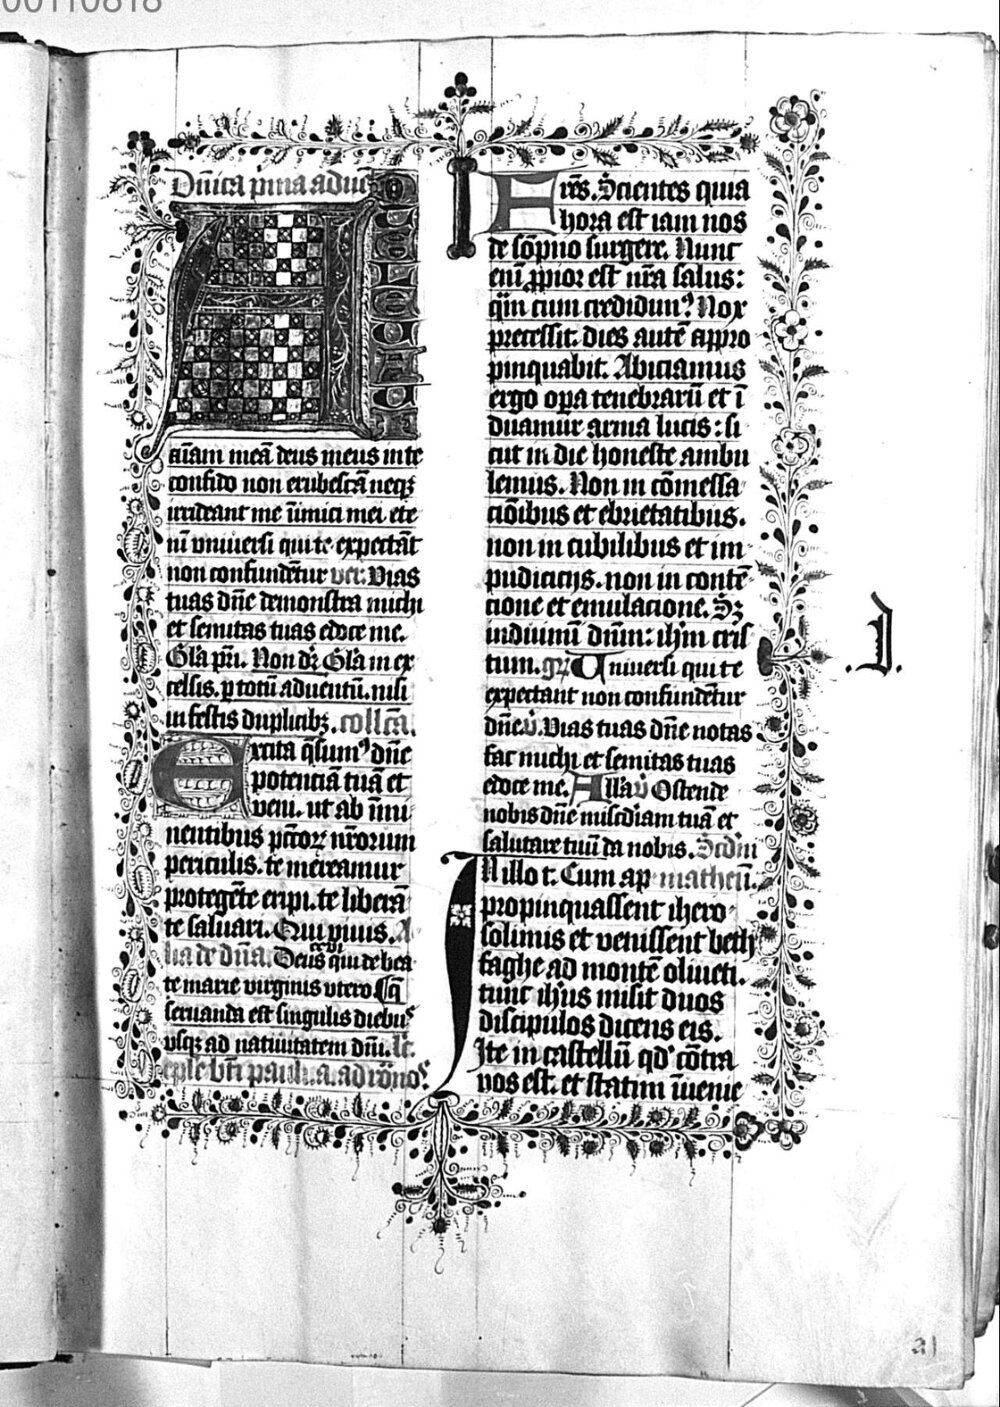 00110818
Dn̄ica p̄ma aduē
A
D TE LEUAUI
aīam meā deus meus in te
confido non erubescā neqꝫ
irrideant me īimici mei. ete
nī vniuersi qui te expectāt
non confundētur ver. Vias
tuas dn̄e demonstra michi
et semitas tuas edoce me.
Gl̄a pr̄i. Non dr̄ Gl̄a in ex
celsis. ꝑ totū aduentū. nisi
in festis duplicibꝫ. coll̄cā.
Excita q̄sumꝰ dn̄e
potenciā tuā et
veni. ut ab īmi
nentibus pc̄toꝝ nr̄orum
periculis. te mereamur
protegēte eripi. te liberā
te saluari. Qui viuis. A
lia de dn̄a. Deus qui de bea
te marie virginis vtero
seruanda est singulis diebuꝰ
vsqꝫ ad natiuitatem dn̄i. lc̄.
ep̄le bt̄i pauli. a. ad rōnoꝰ.
Fr̄es. Scientes quia
hora est iam nos
de sōpno surgere. Nunc
enī ꝓpior est nr̄a salus:
q̄m cum credidimꝰ. Nox
precessit. dies autē appro
pinquabit. Abiciamus
ergo oꝑa tenebrarū et ī
duamur arma lucis: si
cut in die honeste ambu
lemus. Non in cōmessa
ciōibus et ebrietatibus.
non in cubilibus et im
pudicicijs. non in contē
cione et emulacione. Sꝫ
induimī dn̄m: ih̄m cris
tum. gr̄. Vniuersi qui te
expectant non confundētur
dn̄e. v̄. Vias tuas dn̄e notas
fac michi et semitas tuas
edoce me. All̄a v̄ Ostende
nobis dn̄e mis̄cdiam tuā et
salutare tuū da nobis. Sc̄dm
In illo t. Cum ap matheū.
propinquassent ihero
solimis et venissent beth
faghe ad montē oliueti.
tunc ih̄us misit duos
discipulos dicens eis.
Ite in castellū qd̓ cōtra
vos est. et statim īuenie